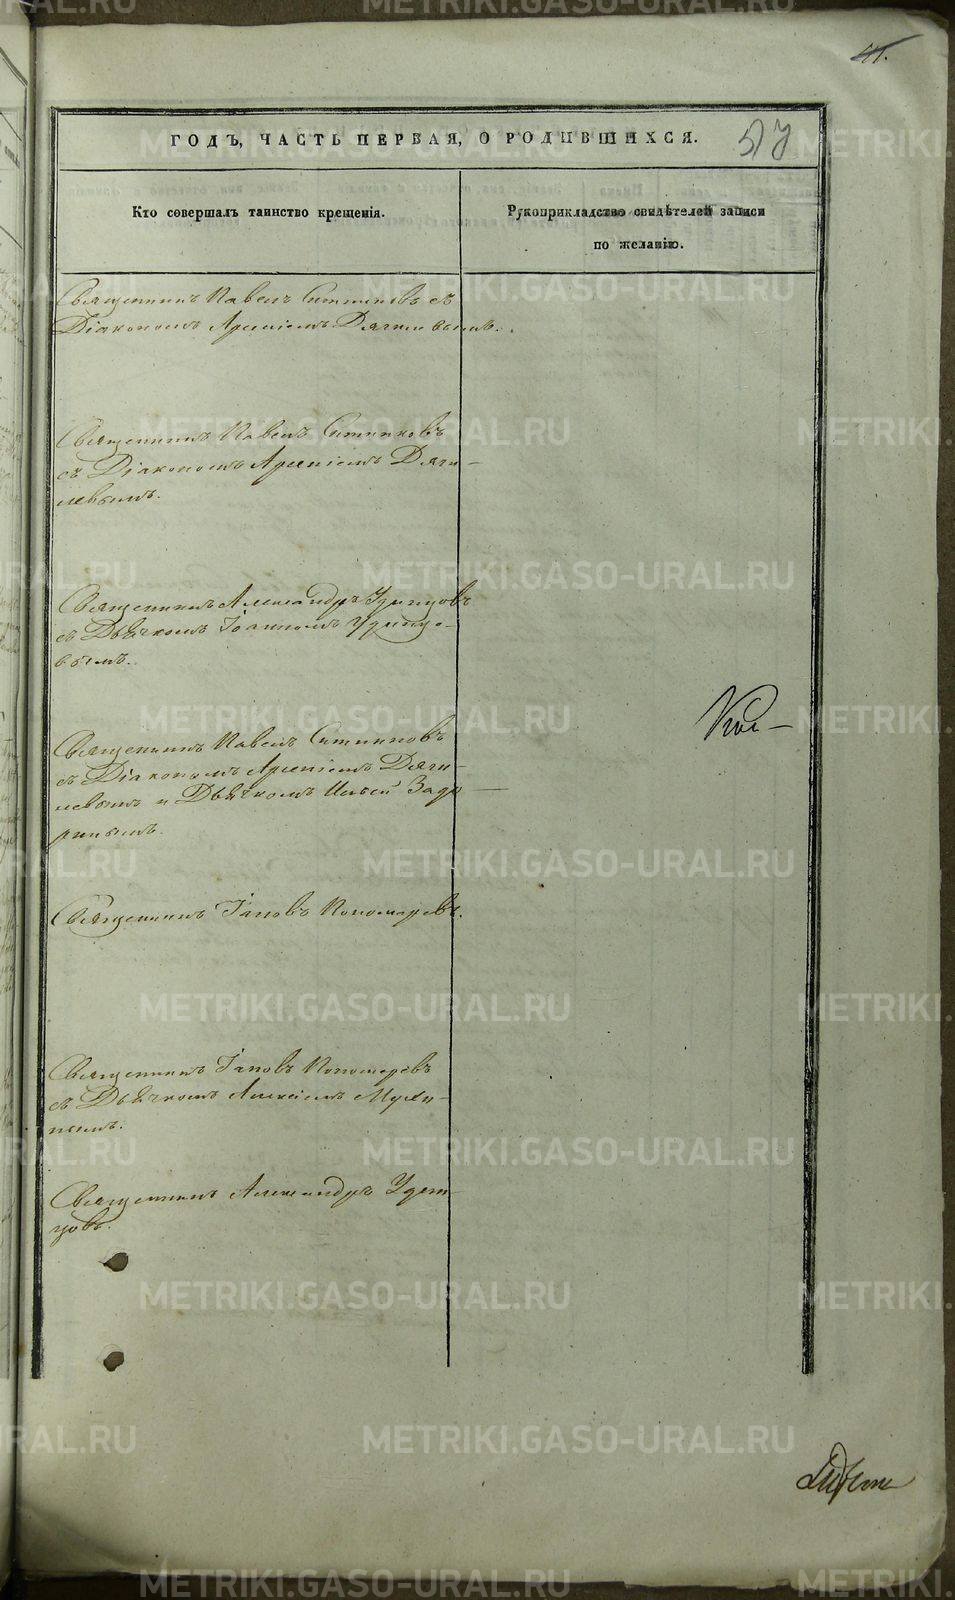 41.
ГОДЪ, ЧАСТЬ ПЕРВАЯ, О РОДИВШИХСЯ.
57
Кто совершалъ таинство крещенія.
Рукоприкладство свидѣтелей записи
по желанію.
Священникъ Павелъ Ситниковъ съ
Діакономъ Арсеніемъ Дягилевымъ.
Священникъ Павелъ Ситниковъ
съ Діакономъ Арсеніемъ Дяги-
левымъ.
Священникъ Александръ Удинцовъ
съ Дьячкомъ Іоанномъ Удинцо-
вымъ.
Священникъ Павелъ Ситниковъ
съ Діакономъ Арсеніемъ Дяги-
левымъ и Дьячкомъ Ильей Задо
ринымъ.
Священникъ Іаковъ Пономаревъ.
Священникъ Іаковъ Пономаревъ
съ Дьячкомъ Алексіемъ Мухи-
нымъ.
Священникъ Александръ Удин-
цовъ.
METRIKI.GASO-URAL.RU